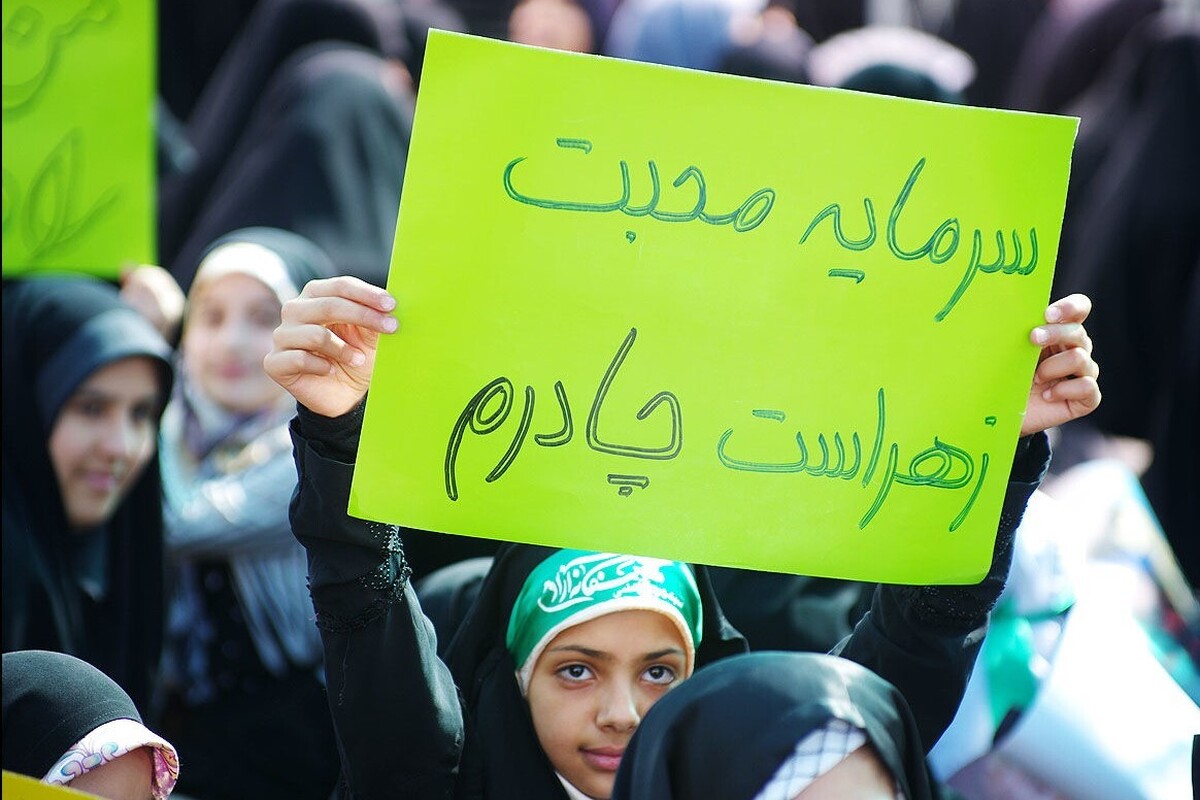 سرمایه محبت
زهراست چادرم